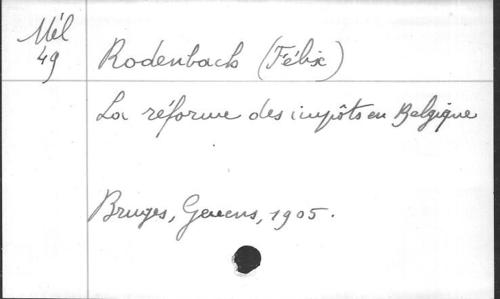 Mél
49
Rodenbach (Félix)
La réforme des impôts en Belgique
Bruges, Geuens, 1905.